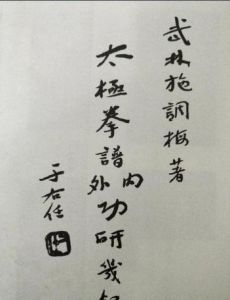 武林施調梅著
太極拳譜內外功研幾
于右任